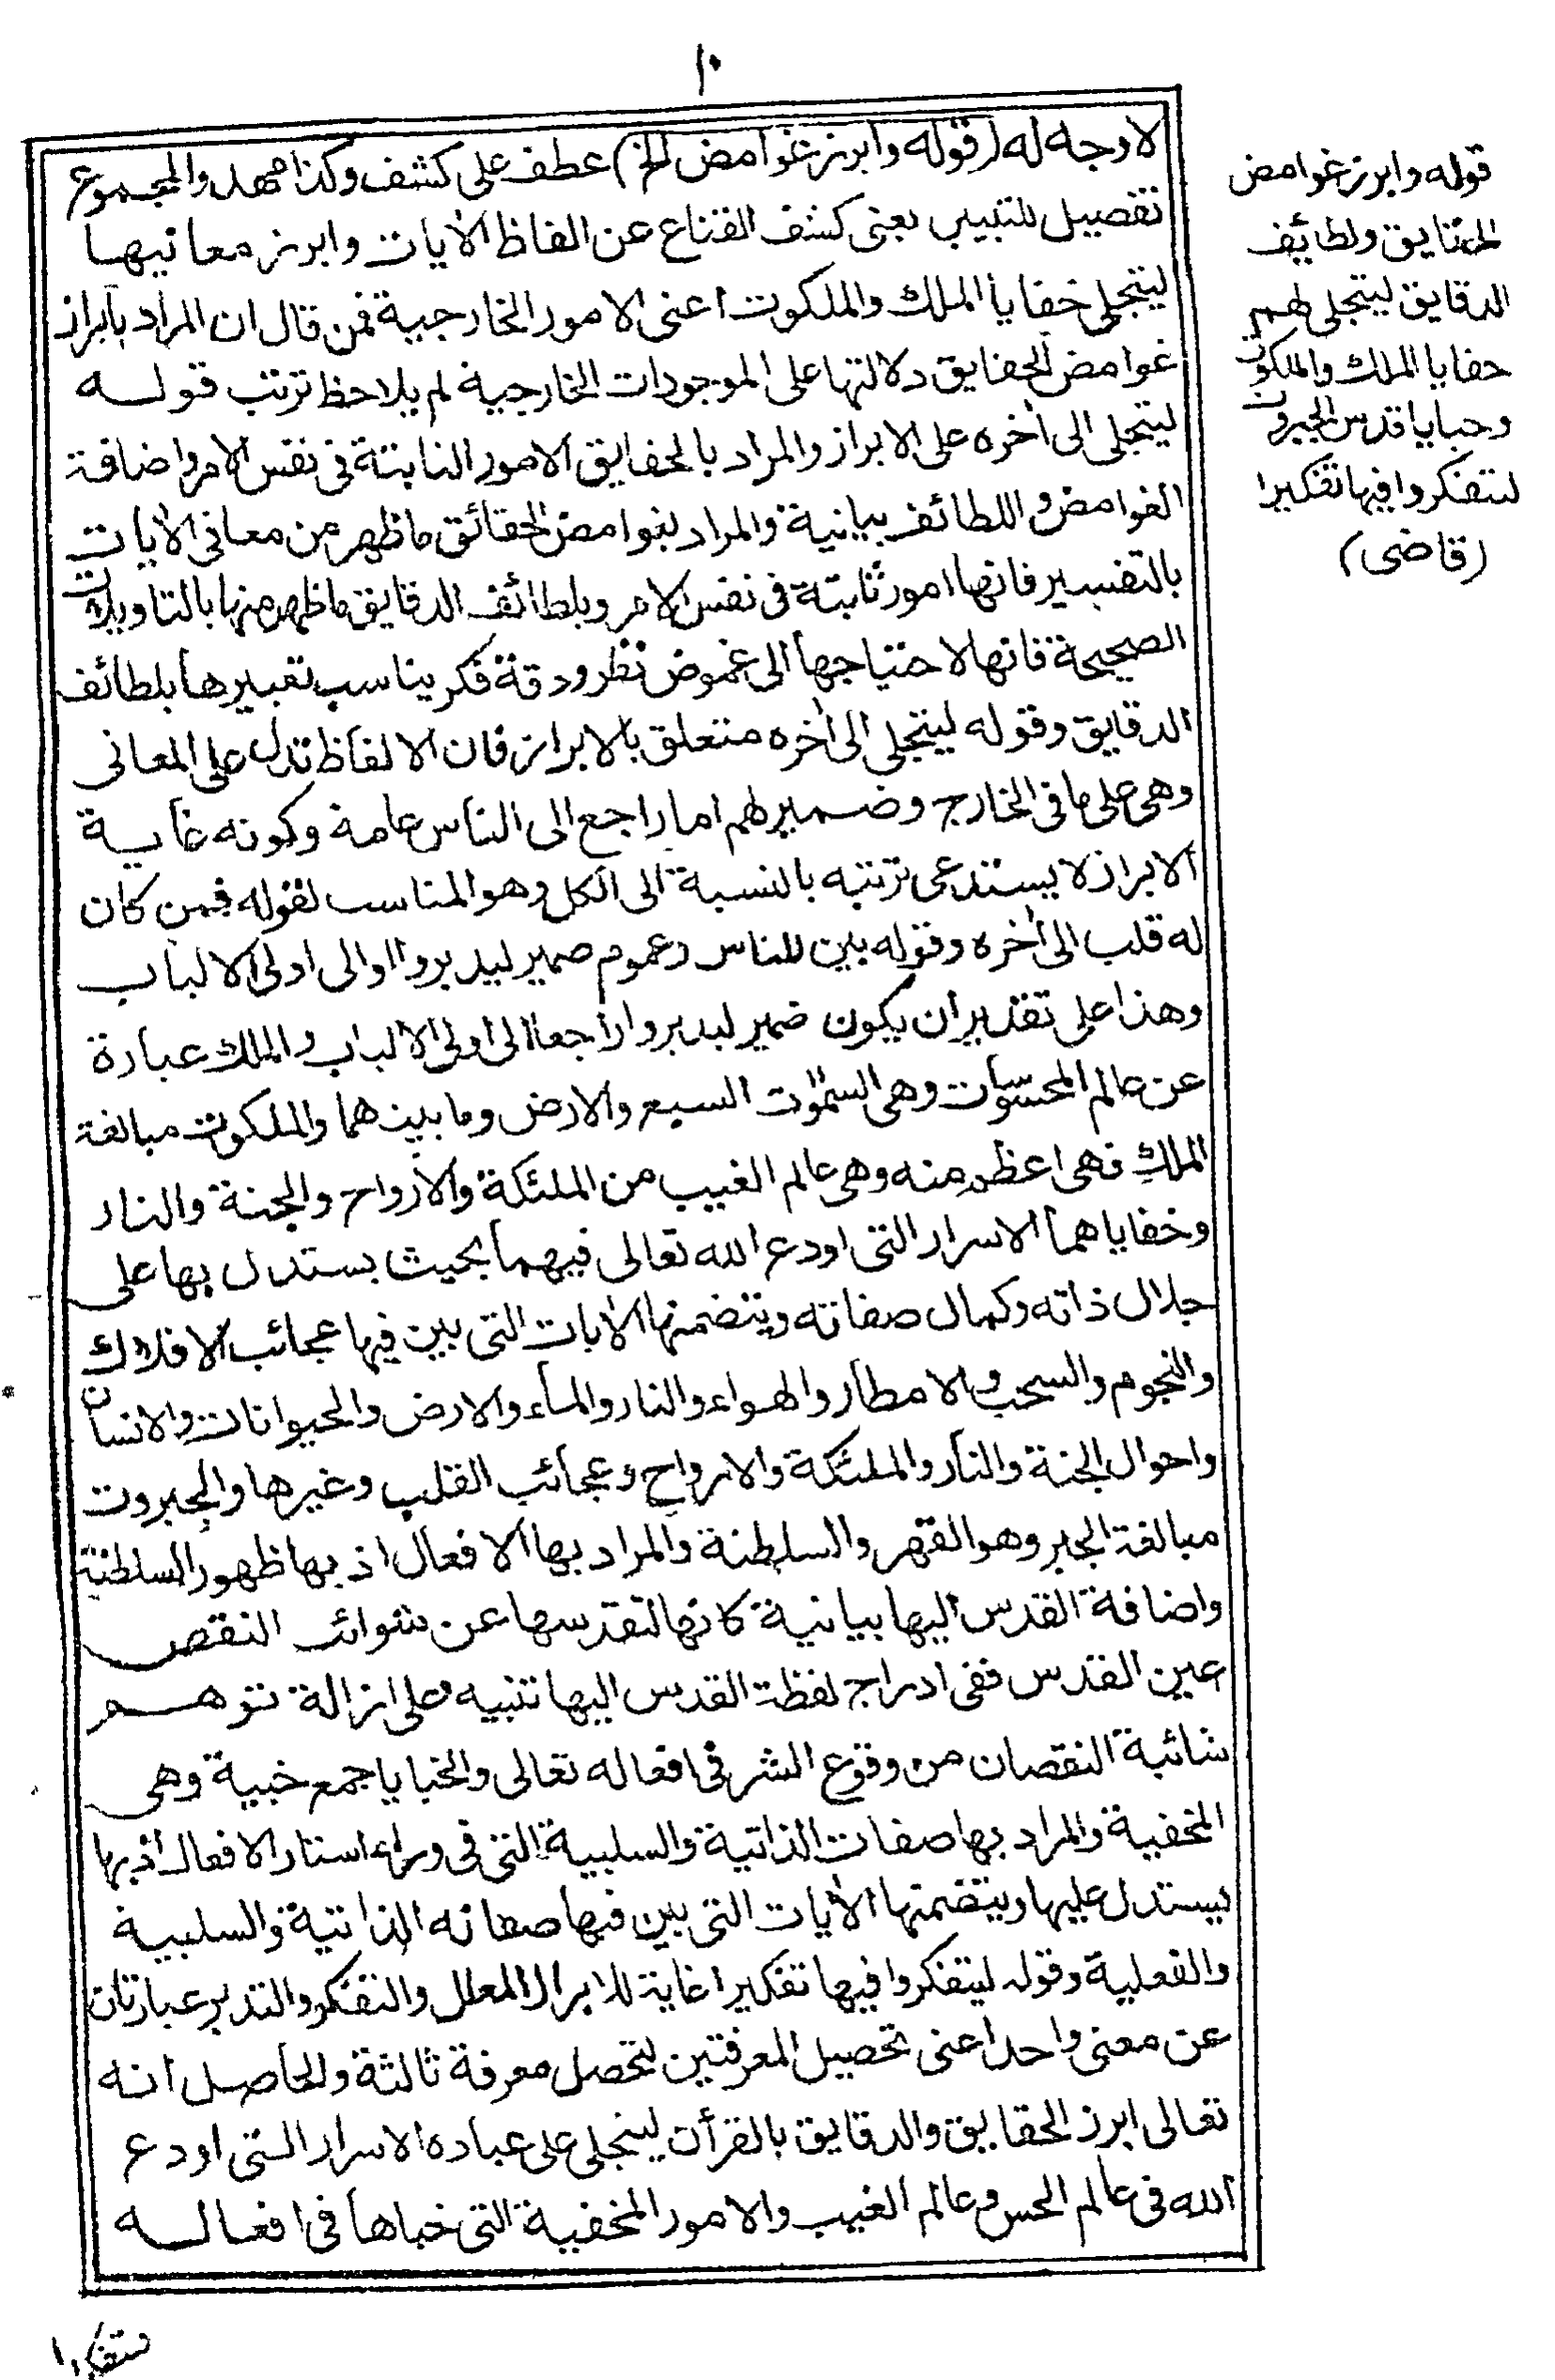 ١٠
لا وجه له (قوله وابرز غوامض الخ) عطف على كشف وكذا مهد والمجموع
تفصيل للتبيين يعنى كشف القناع عن الفاظ الآيات وابرز معانيها
ليتجلى خفايا الملك والملكوت اعنى الامور الخارجية فمن قال ان المراد بابراز
غوامض الحقايق دلالتها على الموجودات الخارجية لم يلاحظ ترتب قوله
ليتجلى الى آخره على الابراز والمراد بالحقايق الامور الثابتة فى نفس الامر واضافة
الغوامض واللطائف بيانية والمراد بغوامض الحقائق ما ظهر من معانى الآيات
بالتفسير فانها امور ثابتة فى نفس الامر وبلطائف الدقايق ما ظهر منها بالتاويلات
الصحيحة فانها لاحتياجها الى غموض نظر ودقة فكر يناسب تعبيرها بلطائف
الدقايق وقوله ليتجلى الى آخره متعلق بالابراز فان الالفاظ تدل على المعانى
وهى على ما فى الخارج وضمير لهم اما راجع الى الناس عامة وكونه غاية
الابراز لا يستدعى ترتبه بالنسبة الى الكل وهو المناسب لقوله فمن كان
له قلب الى آخره وقوله بين للناس وعموم ضمير ليدبروا او الى اولى الالباب
وهذا على تقدير ان يكون ضمير ليدبروا راجعا الى اولى الالباب والملك عبارة
عن عالم المحسوسات وهى السموات السبع والارض وما بينهما والملكوت مبالغة
الملك فهى اعظم منه وهى عالم الغيب من الملئكة والارواح والجنة والنار
وخفاياهما الاسرار التى اودع الله تعالى فيهما بحيث يستدل بها على
جلال ذاته وكمال صفاته ويتضمنها الآيات التى بين فيها عجائب الافلاك
والنجوم والسحب والامطار والهواء والنار والماء والارض والحيوانات والانسان
واحوال الجنة والنار والملئكة والارواح وعجائب القلب وغيرها والجبروت
مبالغة الجبر وهو القهر والسلطنة والمراد بها الافعال اذ بها ظهور السلطنة
واضافة القدس اليها بيانية كانها لتقدسها عن شوائب النقص
عين القدس ففى ادراج لفظة القدس اليها تنبيه على ازالة توهم
شائبة النقصان من وقوع الشر فى افعاله تعالى والخبايا جمع خبية وهى
المخفية والمراد بها صفات الذاتية والسلبية التى فى وراء استار الافعال اذ بها
يستدل عليها ويتضمنها الآيات التى بين فيها صفاته الذاتية والسلبية
والفعلية وقوله ليتفكروا فيها تفكيرا غاية للابراز المعلل والتفكر والتدبر عبارتان
عن معنى واحد اعنى تحصيل المعرفتين لتحصل معرفة ثالثة والحاصل انه
تعالى ابرز الحقايق والدقايق بالقرأن ليتجلى على عباده الاسرار التى اودع
الله فى عالم الحس وعالم الغيب والامور المخفية التى خباها فى افعاله
قوله وابرز غوامض
الحقايق ولطايف
الدقايق ليتجلى لهم
خفايا الملك والملكوت
وخبايا قدس الجبروت
ليتفكروا فيها تفكيرا
(قاضى)